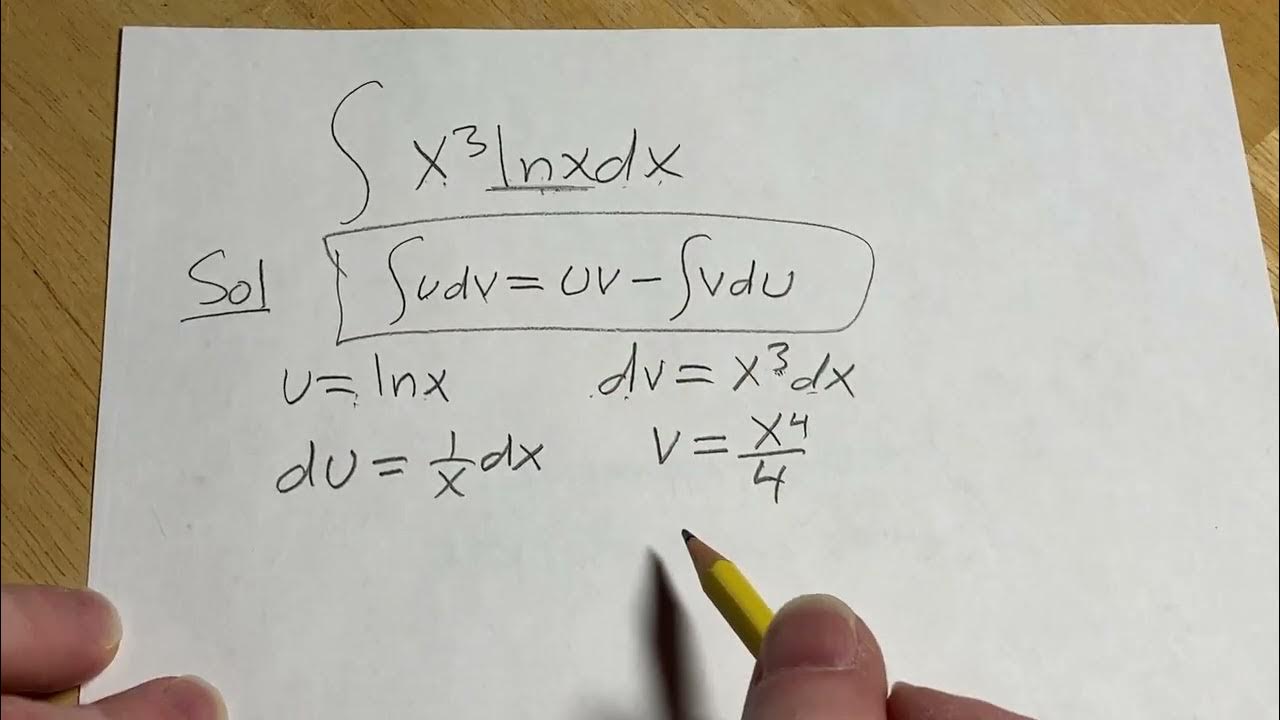 ∫ x³ lnx dx
Sol ∫udv = uv − ∫vdu
u = lnx dv = x³dx
du = 1/x dx v = x⁴/4